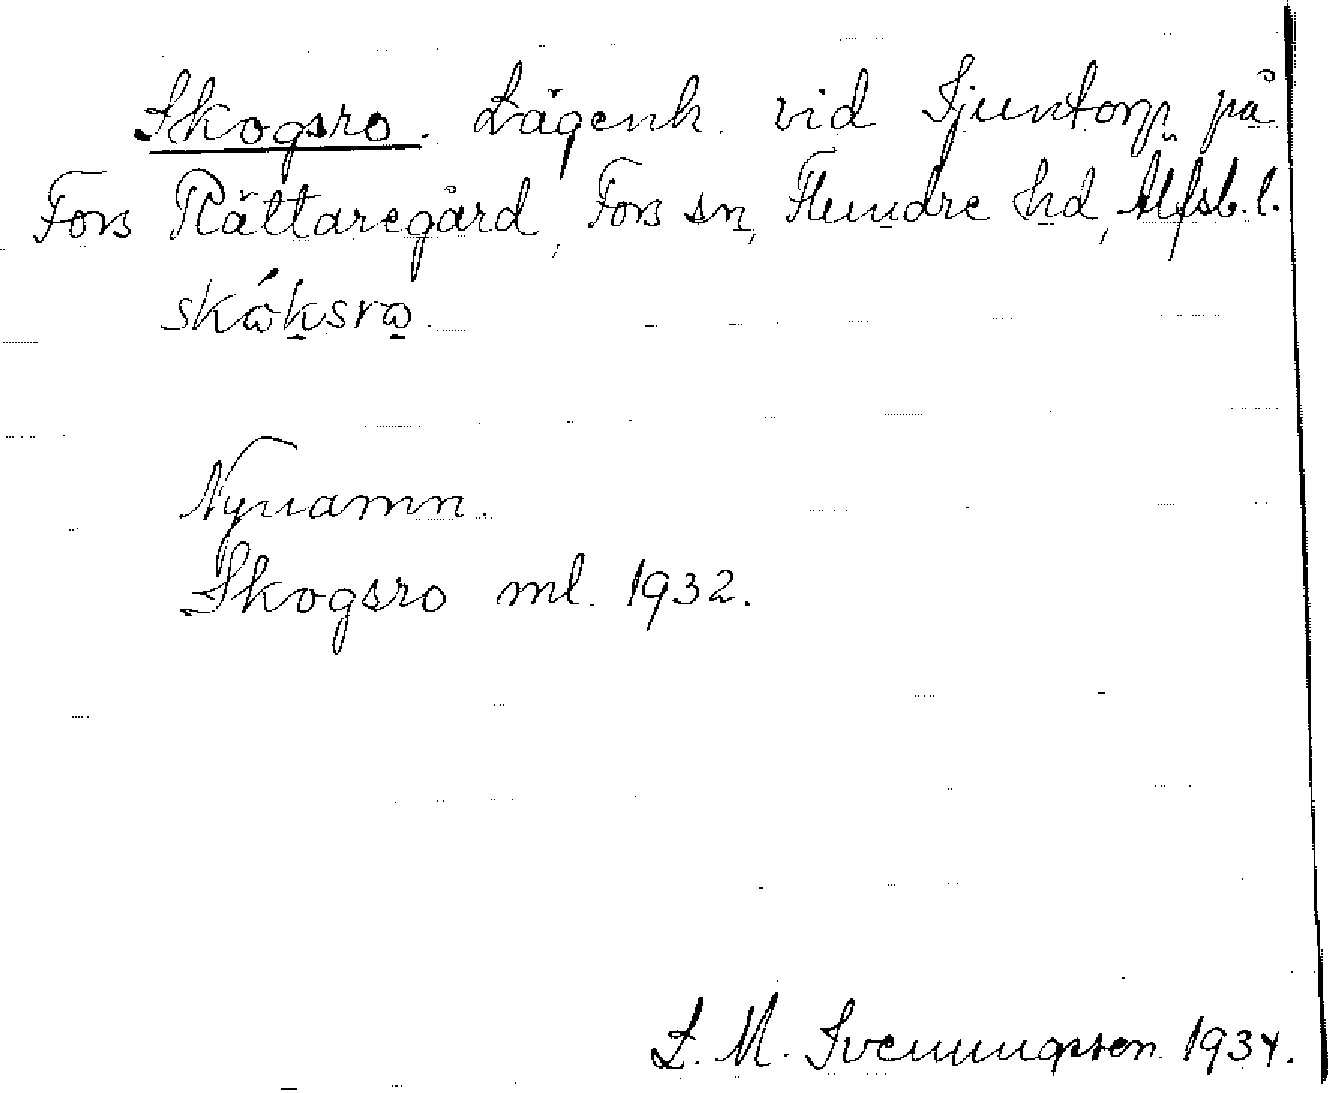 Skogsro. Lägenh. vid Sjuntorp på
Fors Rättaregård, Fors sn, Flundre hd, Älfsb. l.
skɷ́ksrɷ.
Nynamn.
Skogsro ml. 1932.
L. M. Svenungsson 1934.